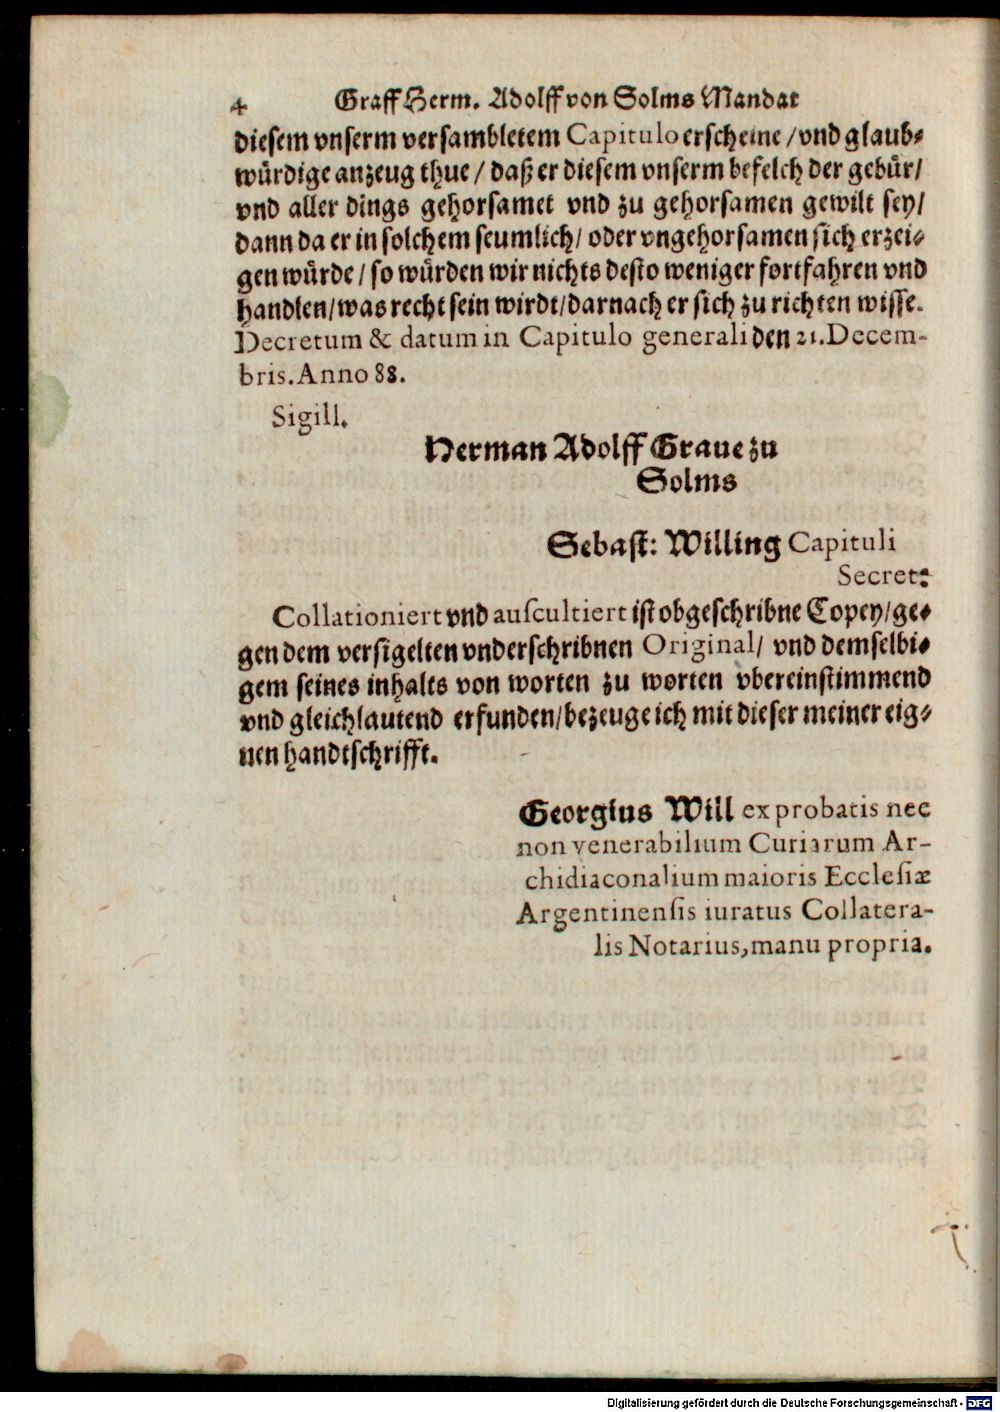 4 Graff Herm. Adolff von Solms Mandat
diesem vnserm versambletem Capitulo erscheine / vnd glaub⸗
würdige anzeug thue / daß er diesem vnserm befelch der gebür /
vnd aller dings gehorsamet vnd zu gehorsamen gewilt sey /
dann da er in solchem seumlich / oder vngehorsamen sich erzei⸗
gen würde / so würden wir nichts desto weniger fortfahren vnd
handlen / was recht sein wirdt / darnach er sich zu richten wisse.
Decretum & datum in Capitulo generali den 21. Decem-
bris. Anno 88.
Sigill.
Herman Adolff Graue zu
Solms
Sebast: Willing Capituli
Secret:
Collationiert vnd auſcultiert ist obgeschribne Copey / ge⸗
gen dem versigelten vnderschribnen Original / vnd demselbi⸗
gem seines inhalts von worten zu worten vbereinstimmend
vnd gleichlautend erfunden / bezeuge ich mit dieser meiner eig⸗
nen handtschrifft.
Georgius Will ex probatis nec
non venerabilium Curiarum Ar-
chidiaconalium maioris Eccleſiæ
Argentinenſis iuratus Collatera-
lis Notarius, manu propria.
Digitalisierung gefördert durch die Deutsche Forschungsgemeinschaft - DFG